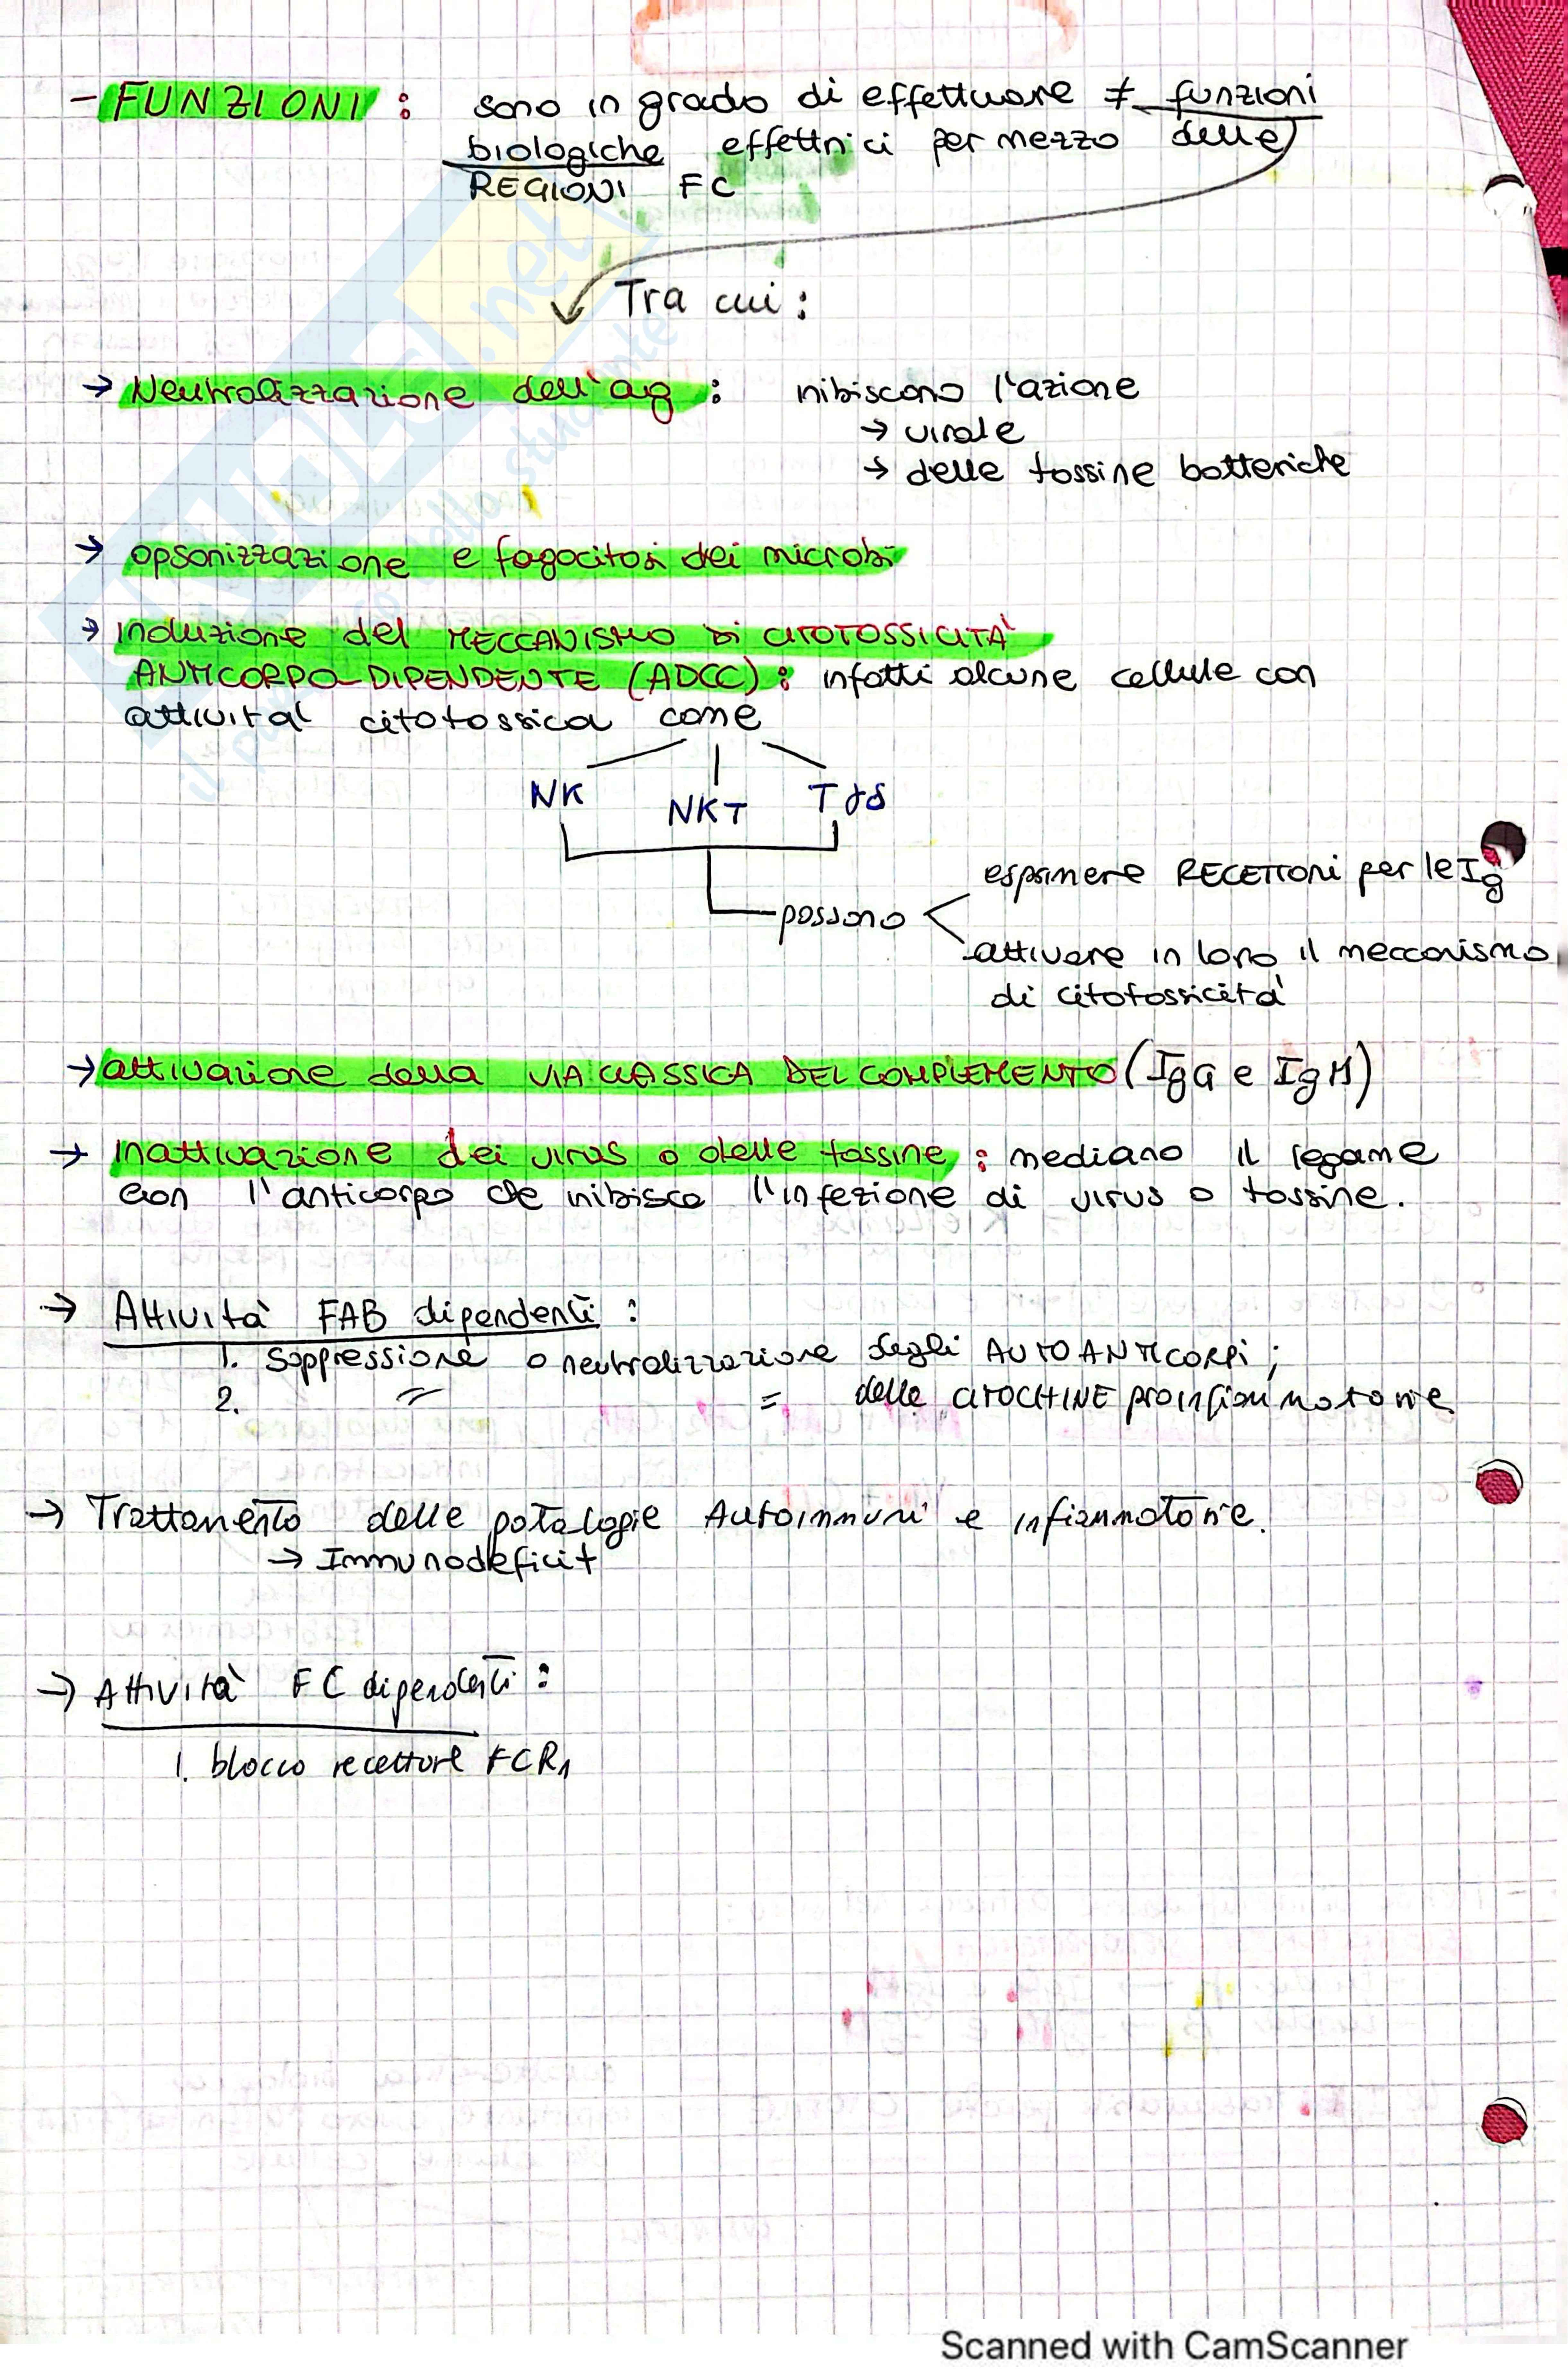 - FUNZIONI : sono in grado di effettuare ≠ funzioni
biologiche effettrici per mezzo delle
REGIONI FC
Tra cui :
→ Neutralizzazione dell'ag : inibiscono l'azione
→ virale
→ delle tossine batteriche
→ opsonizzazione e fagocitosi dei microbi
→ induzione del MECCANISMO DI CITOTOSSICITÀ
ANTICORPO-DIPENDENTE (ADCC) : infatti alcune cellule con
attività citotossica come
NK NKT T γδ
esprimere RECETTORI per le Ig
possono
attivare in loro il meccanismo
di citotossicità
→ attivazione della VIA CLASSICA DEL COMPLEMENTO (IgG e IgM)
→ Inattivazione dei virus o delle tossine : mediano il legame
con l'anticorpo che inibisce l'infezione di virus o tossine.
→ Attività FAB dipendenti :
1. Soppressione o neutralizzazione degli AUTOANTICORPI ;
2. = = delle CITOCHINE proinfiammatorie
→ Trattamento delle patologie Autoimmuni e infiammatorie.
→ Immunodeficit
→ Attività FC dipendenti :
1. blocco recettore FCR1
UNILS.net
il punto dello studente
Scanned with CamScanner